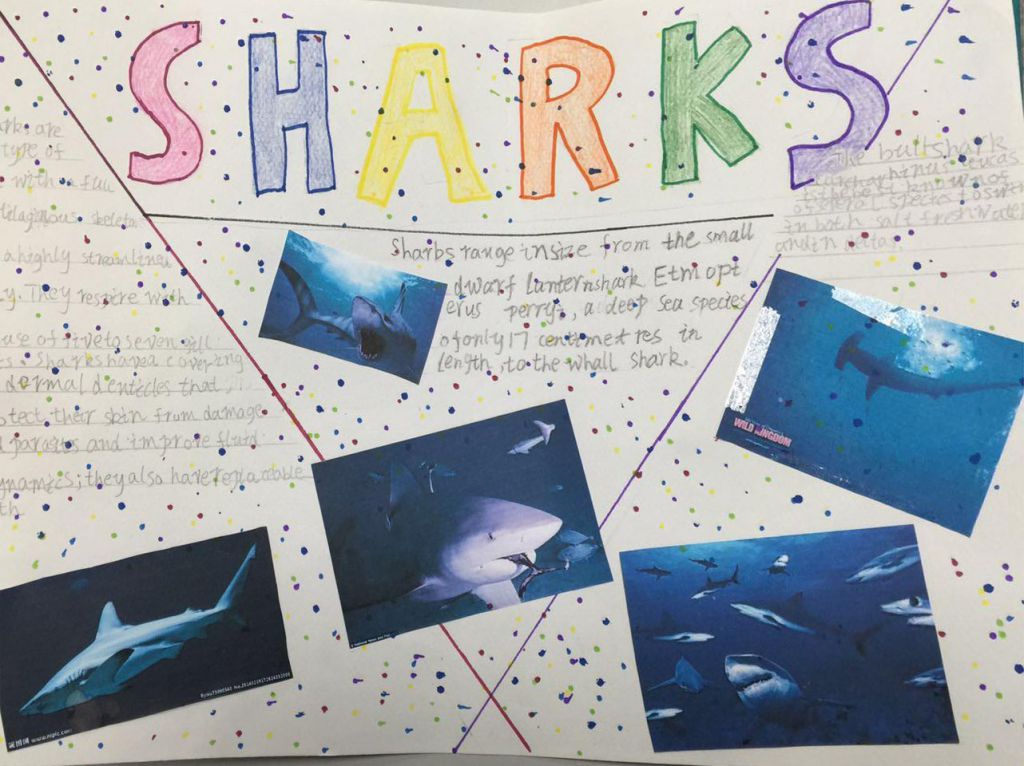 SHARKS
ark are
type of
with a full
tilaginous skeleta
a highly streamlined
y. They respire with
use of five to seven gill
s. Sharks have a covering
dermal denticles that
otect their skin from damage
d parasites and improve fluid
ynamics; they also have replacable
th
Sharbs range in size from the small
dwarf lanternshark Etmopt
erus perryi, a deep sea species
of only 17 centimetres in
length, to the whall shark.
The bullshark
leucas
known of
in both salt freshwater
and in
WILD KINGDOM
www.nipic.com